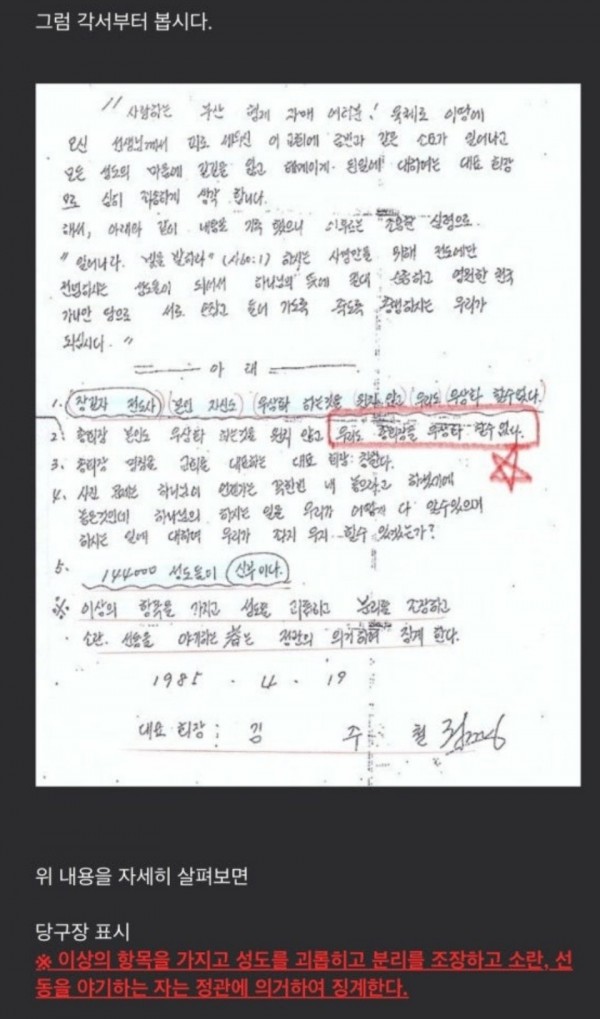 그럼 각서부터 봅시다.
" 사랑하는 부산 형제 자매 여러분! 육체로 이땅에
오신 선생님께서 피로 세우신 이 교회에 금번과 같은 소요가 일어나고
모든 성도의 마음에 갈길을 않고 된일에 대하여는 대표 회장
으로 심히 죄송하게 생각 합니다.
해서, 아래와 같이 내용을 기록 했으니 심령으로
" 일어나라. 빛을 발하라" (사60:1) 하시는 사명만을 위해 전도에만
전념하시는 성도들이 되어서 하나님의 하고 영원한 천국
가나안 땅으로 서로 손잡고 들어 가도록 우리가
되십시다. "
아 래
1. 장길자 전도사 본인 자신도 우상화 하는것을 원치 않고 우리도 우상화 할수없다.
2. 총회장 본인도 우상화 하는것을 원치 않고 우리도 총회장을 우상화 할수 없다.
3. 총회장 명칭을 교회를 대표하는 대표 회장: 칭한다.
4. 사진 하나님이 언젠가는 꼭한번 내 놓으라고 하셨기에
놓은것인데 하나님의 하시는 일을 우리가 어떻게 다 알수있으며
하시는 일에 대하여 우리가 좌지 우지 할수 있겠는가?
5. 144000 성도들이 신부이다.
※ 이상의 항목을 가지고 성도를 괴롭히고 분리를 조장하고
소란. 선동을 야기하는 者는 정관의 의거하여 징계 한다.
1985 . 4 . 19
대표 회장 : 김 주 철
위 내용을 자세히 살펴보면
당구장 표시
※ 이상의 항목을 가지고 성도를 괴롭히고 분리를 조장하고 소란, 선
동을 야기하는 자는 정관에 의거하여 징계한다.